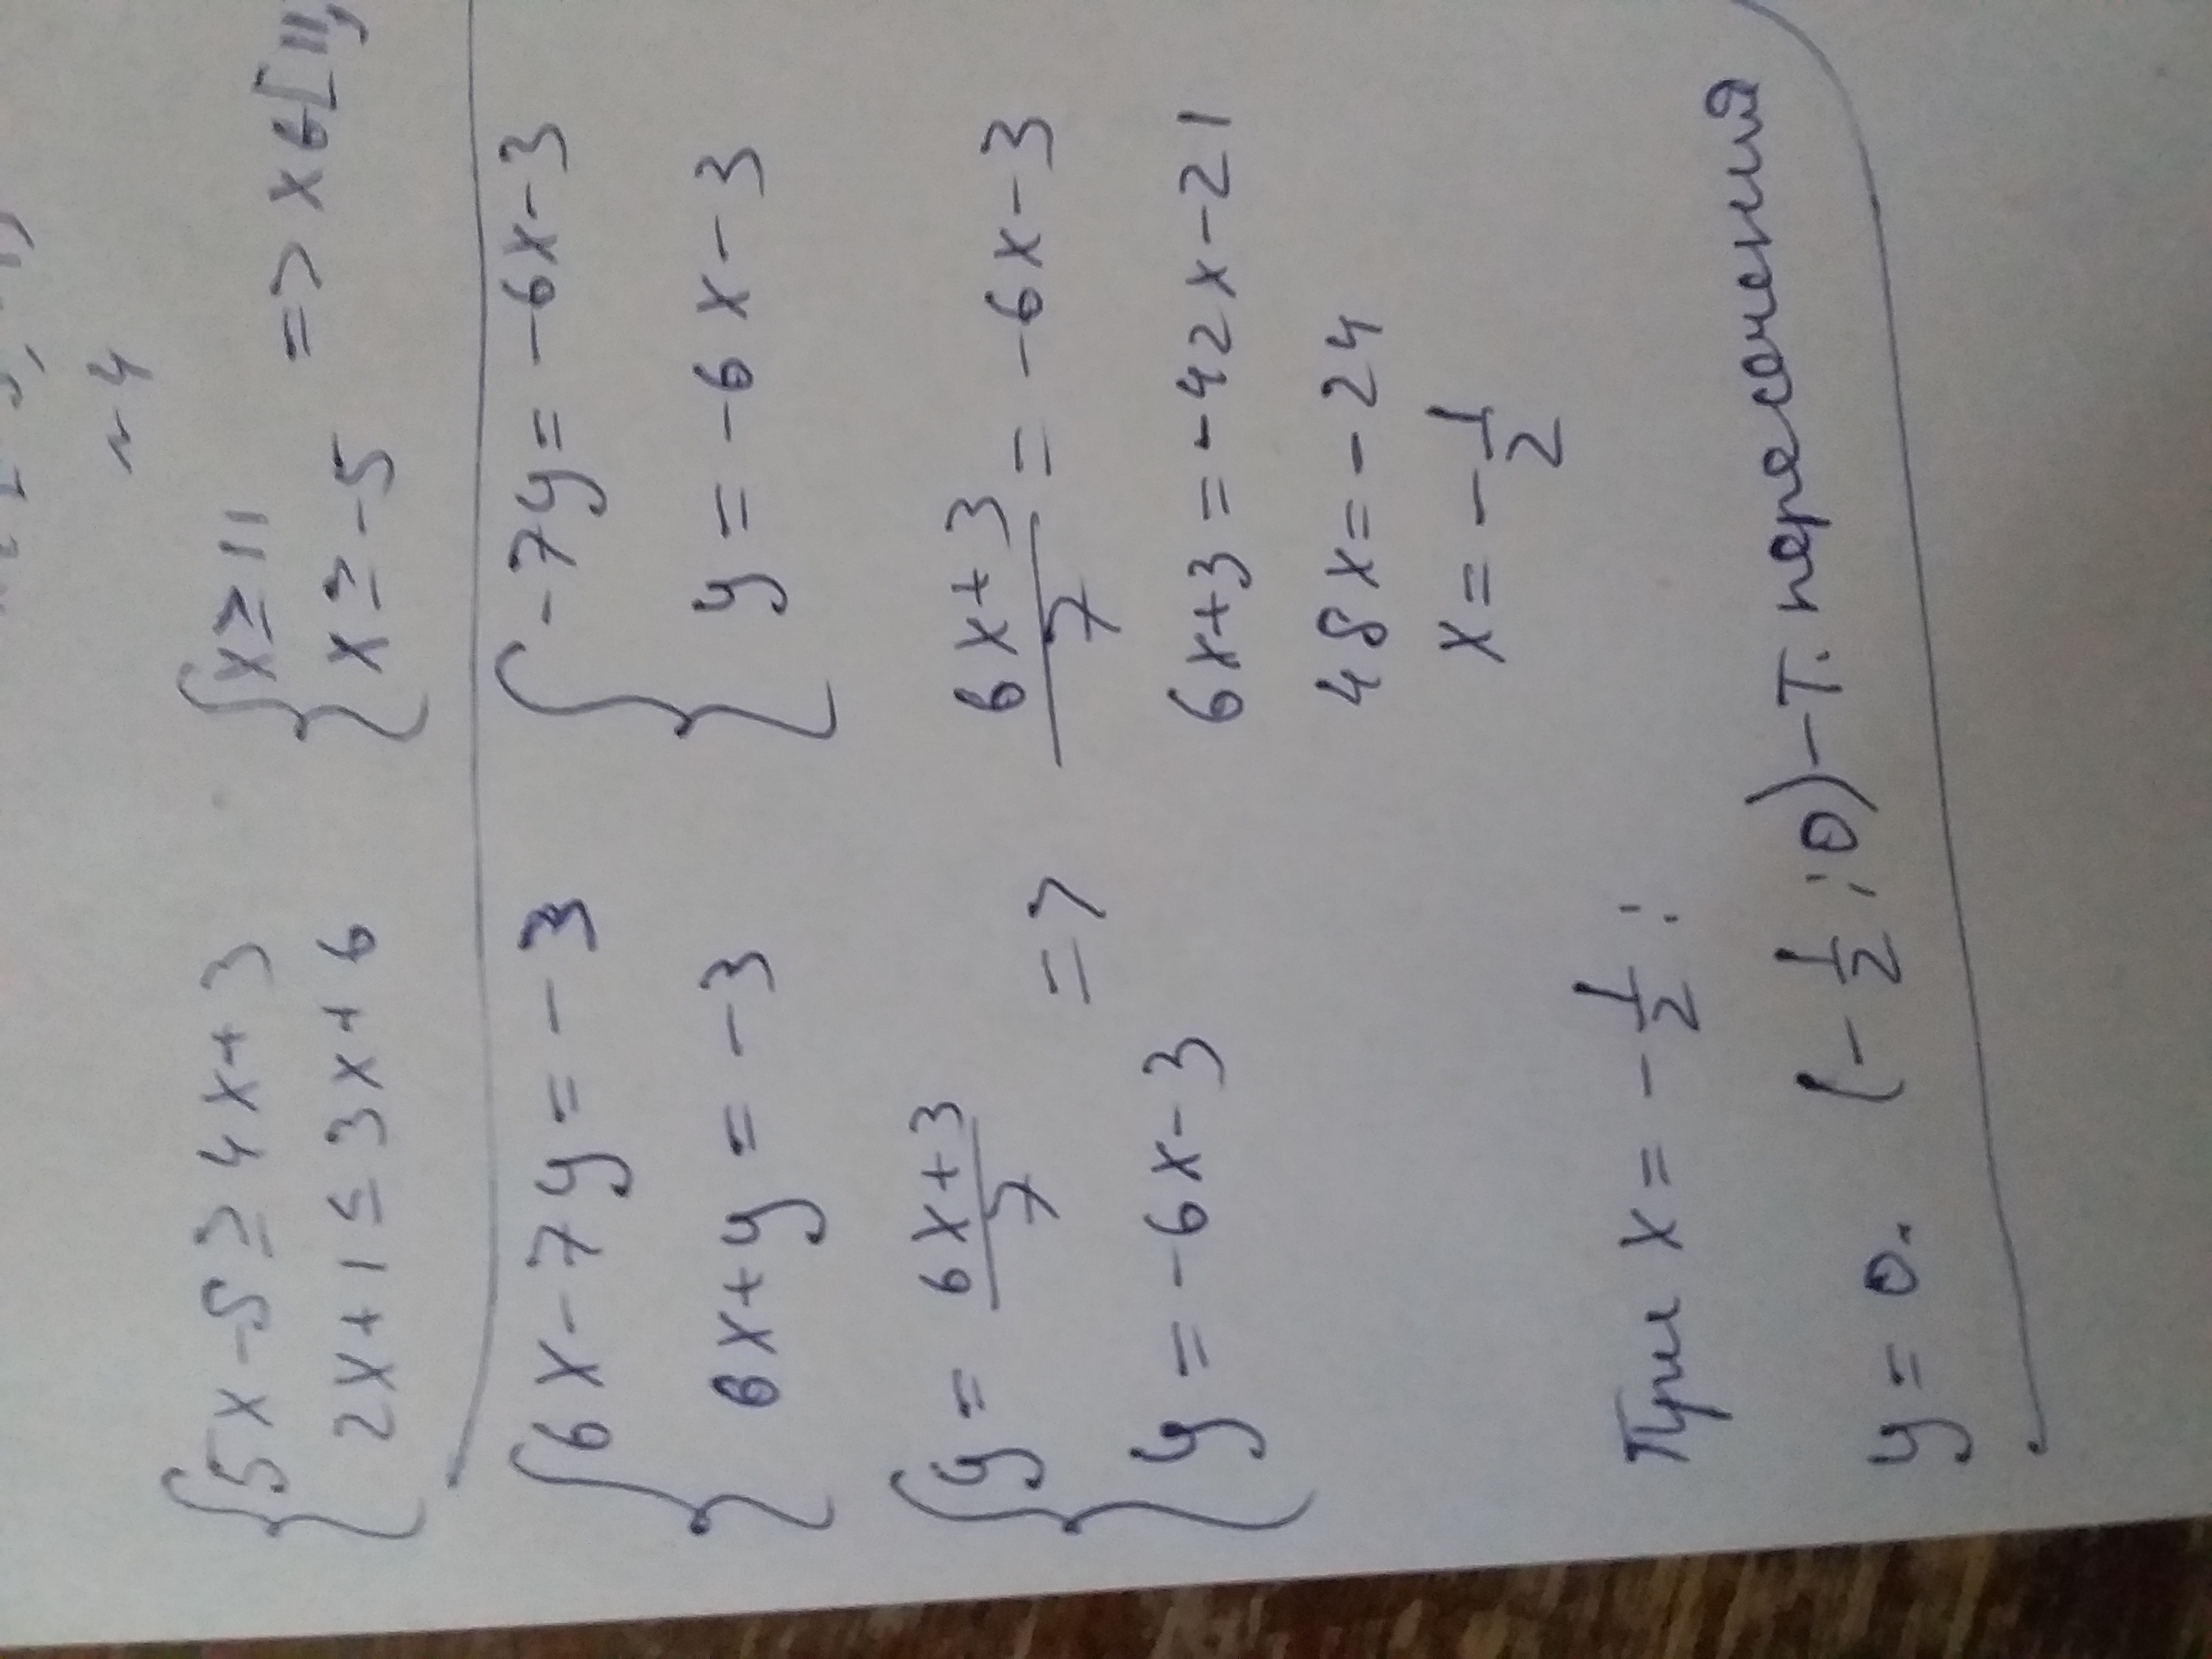 ~4
{ 5x-8≥4x+3 { x≥11
2x+1≤3x+6 x≥-5 => x∈[11;
{ 6x-7y=-3 { -7y=-6x-3
6x+y=-3 y=-6x-3
{ y=(6x+3)/7 => (6x+3)/7=-6x-3
y=-6x-3 6x+3=-42x-21
48x=-24
x=-1/2
При x=-1/2:
y=0. (-1/2;0)-т. пересечения